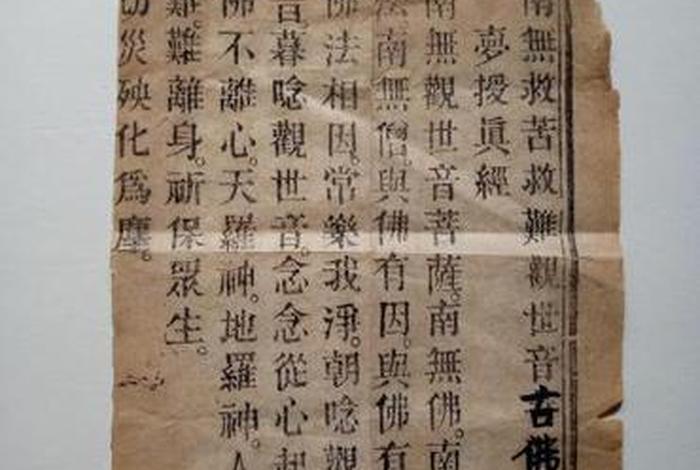 南無救苦救難觀世音古佛
夢授眞經
南無觀世音菩薩。南無佛。南
法南無僧。與佛有因。與佛有
佛法相因。常樂我淨。朝唸觀
音。暮唸觀世音。念念從心起
佛不離心。天羅神。地羅神。人
難。難離身。祈保眾生。
切災殃化爲塵。